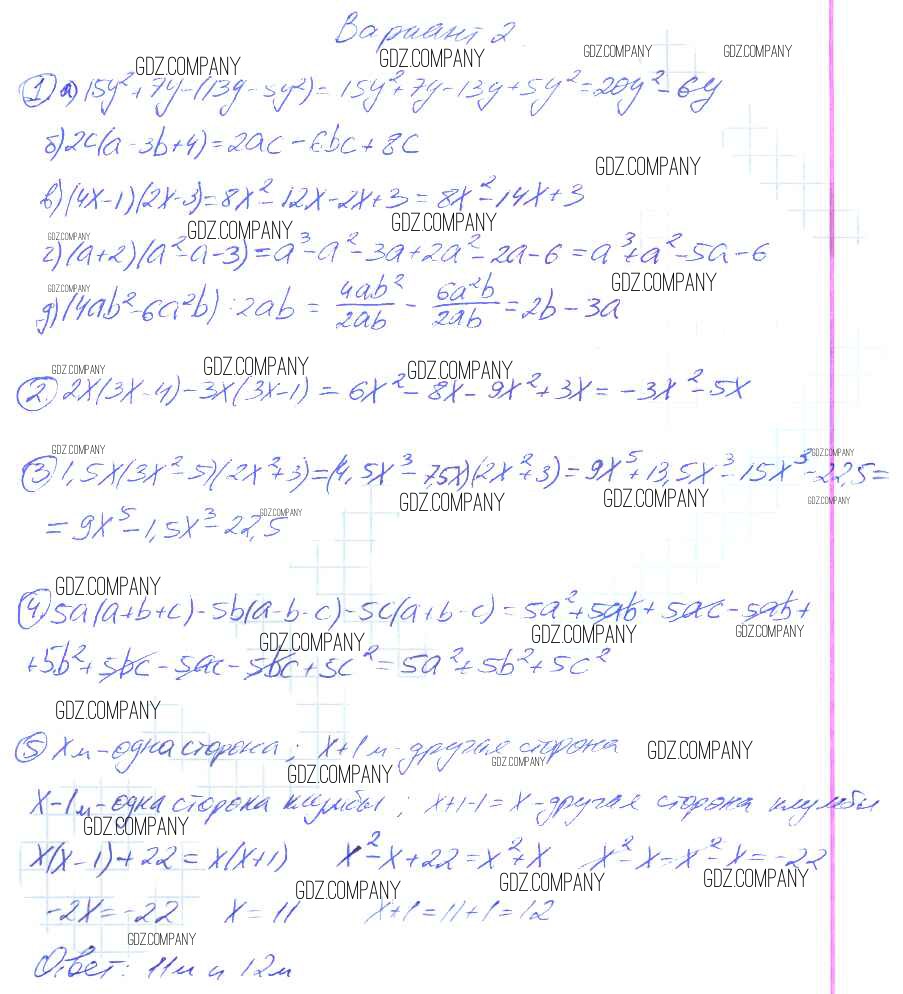 Вариант 2
GDZ.COMPANY GDZ.COMPANY GDZ.COMPANY GDZ.COMPANY
① а) 15y²+7y-(13y-5y²)=15y²+7y-13y+5y²=20y²-6y
б) 2c(a-3b+4)=2ac-6bc+8c
GDZ.COMPANY
в) (4x-1)(2x-3)=8x²-12x-2x+3=8x²-14x+3
GDZ.COMPANY GDZ.COMPANY GDZ.COMPANY
г) (a+2)(a²-a-3)=a³-a²-3a+2a²-2a-6=a³+a²-5a-6
GDZ.COMPANY GDZ.COMPANY
д) (4ab²-6a²b):2ab = 4ab²/2ab - 6a²b/2ab = 2b-3a
GDZ.COMPANY GDZ.COMPANY GDZ.COMPANY
② 2x(3x-4)-3x(3x-1)=6x²-8x-9x²+3x=-3x²-5x
GDZ.COMPANY GDZ.COMPANY
③ 1,5x(3x²-5)(2x²+3)=(4,5x³-7,5x)(2x²+3)=9x⁵+13,5x³-15x³-22,5=
GDZ.COMPANY GDZ.COMPANY GDZ.COMPANY
=9x⁵-1,5x³-22,5
GDZ.COMPANY
GDZ.COMPANY
④ 5a(a+b+c)-5b(a-b-c)-5c(a+b-c)=5a²+5ab+5ac-5ab+
GDZ.COMPANY GDZ.COMPANY GDZ.COMPANY
+5b²+5bc-5ac-5bc+5c²=5a²+5b²+5c²
GDZ.COMPANY
⑤ x м-одна сторона; x+1м-другая сторона
GDZ.COMPANY GDZ.COMPANY GDZ.COMPANY
x-1м-одна сторона клумбы; x+1-1=x-другая сторона клумбы
GDZ.COMPANY
x(x-1)+22=x(x+1) x²-x+22=x²+x x²-x-x²-x=-22
GDZ.COMPANY GDZ.COMPANY GDZ.COMPANY
-2x=-22 x=11 x+1=11+1=12
GDZ.COMPANY
Ответ: 11м и 12м